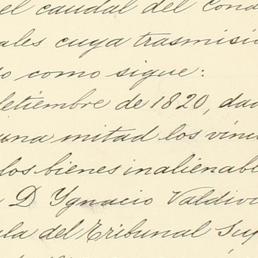 el caudal del Cond
ales cuya trasmisi
o como sigue:
Setiembre de 1820, da
una mitad los vínc
los bienes inalienab
D Ygnacio Valdivi
ula del Tribunal Sup